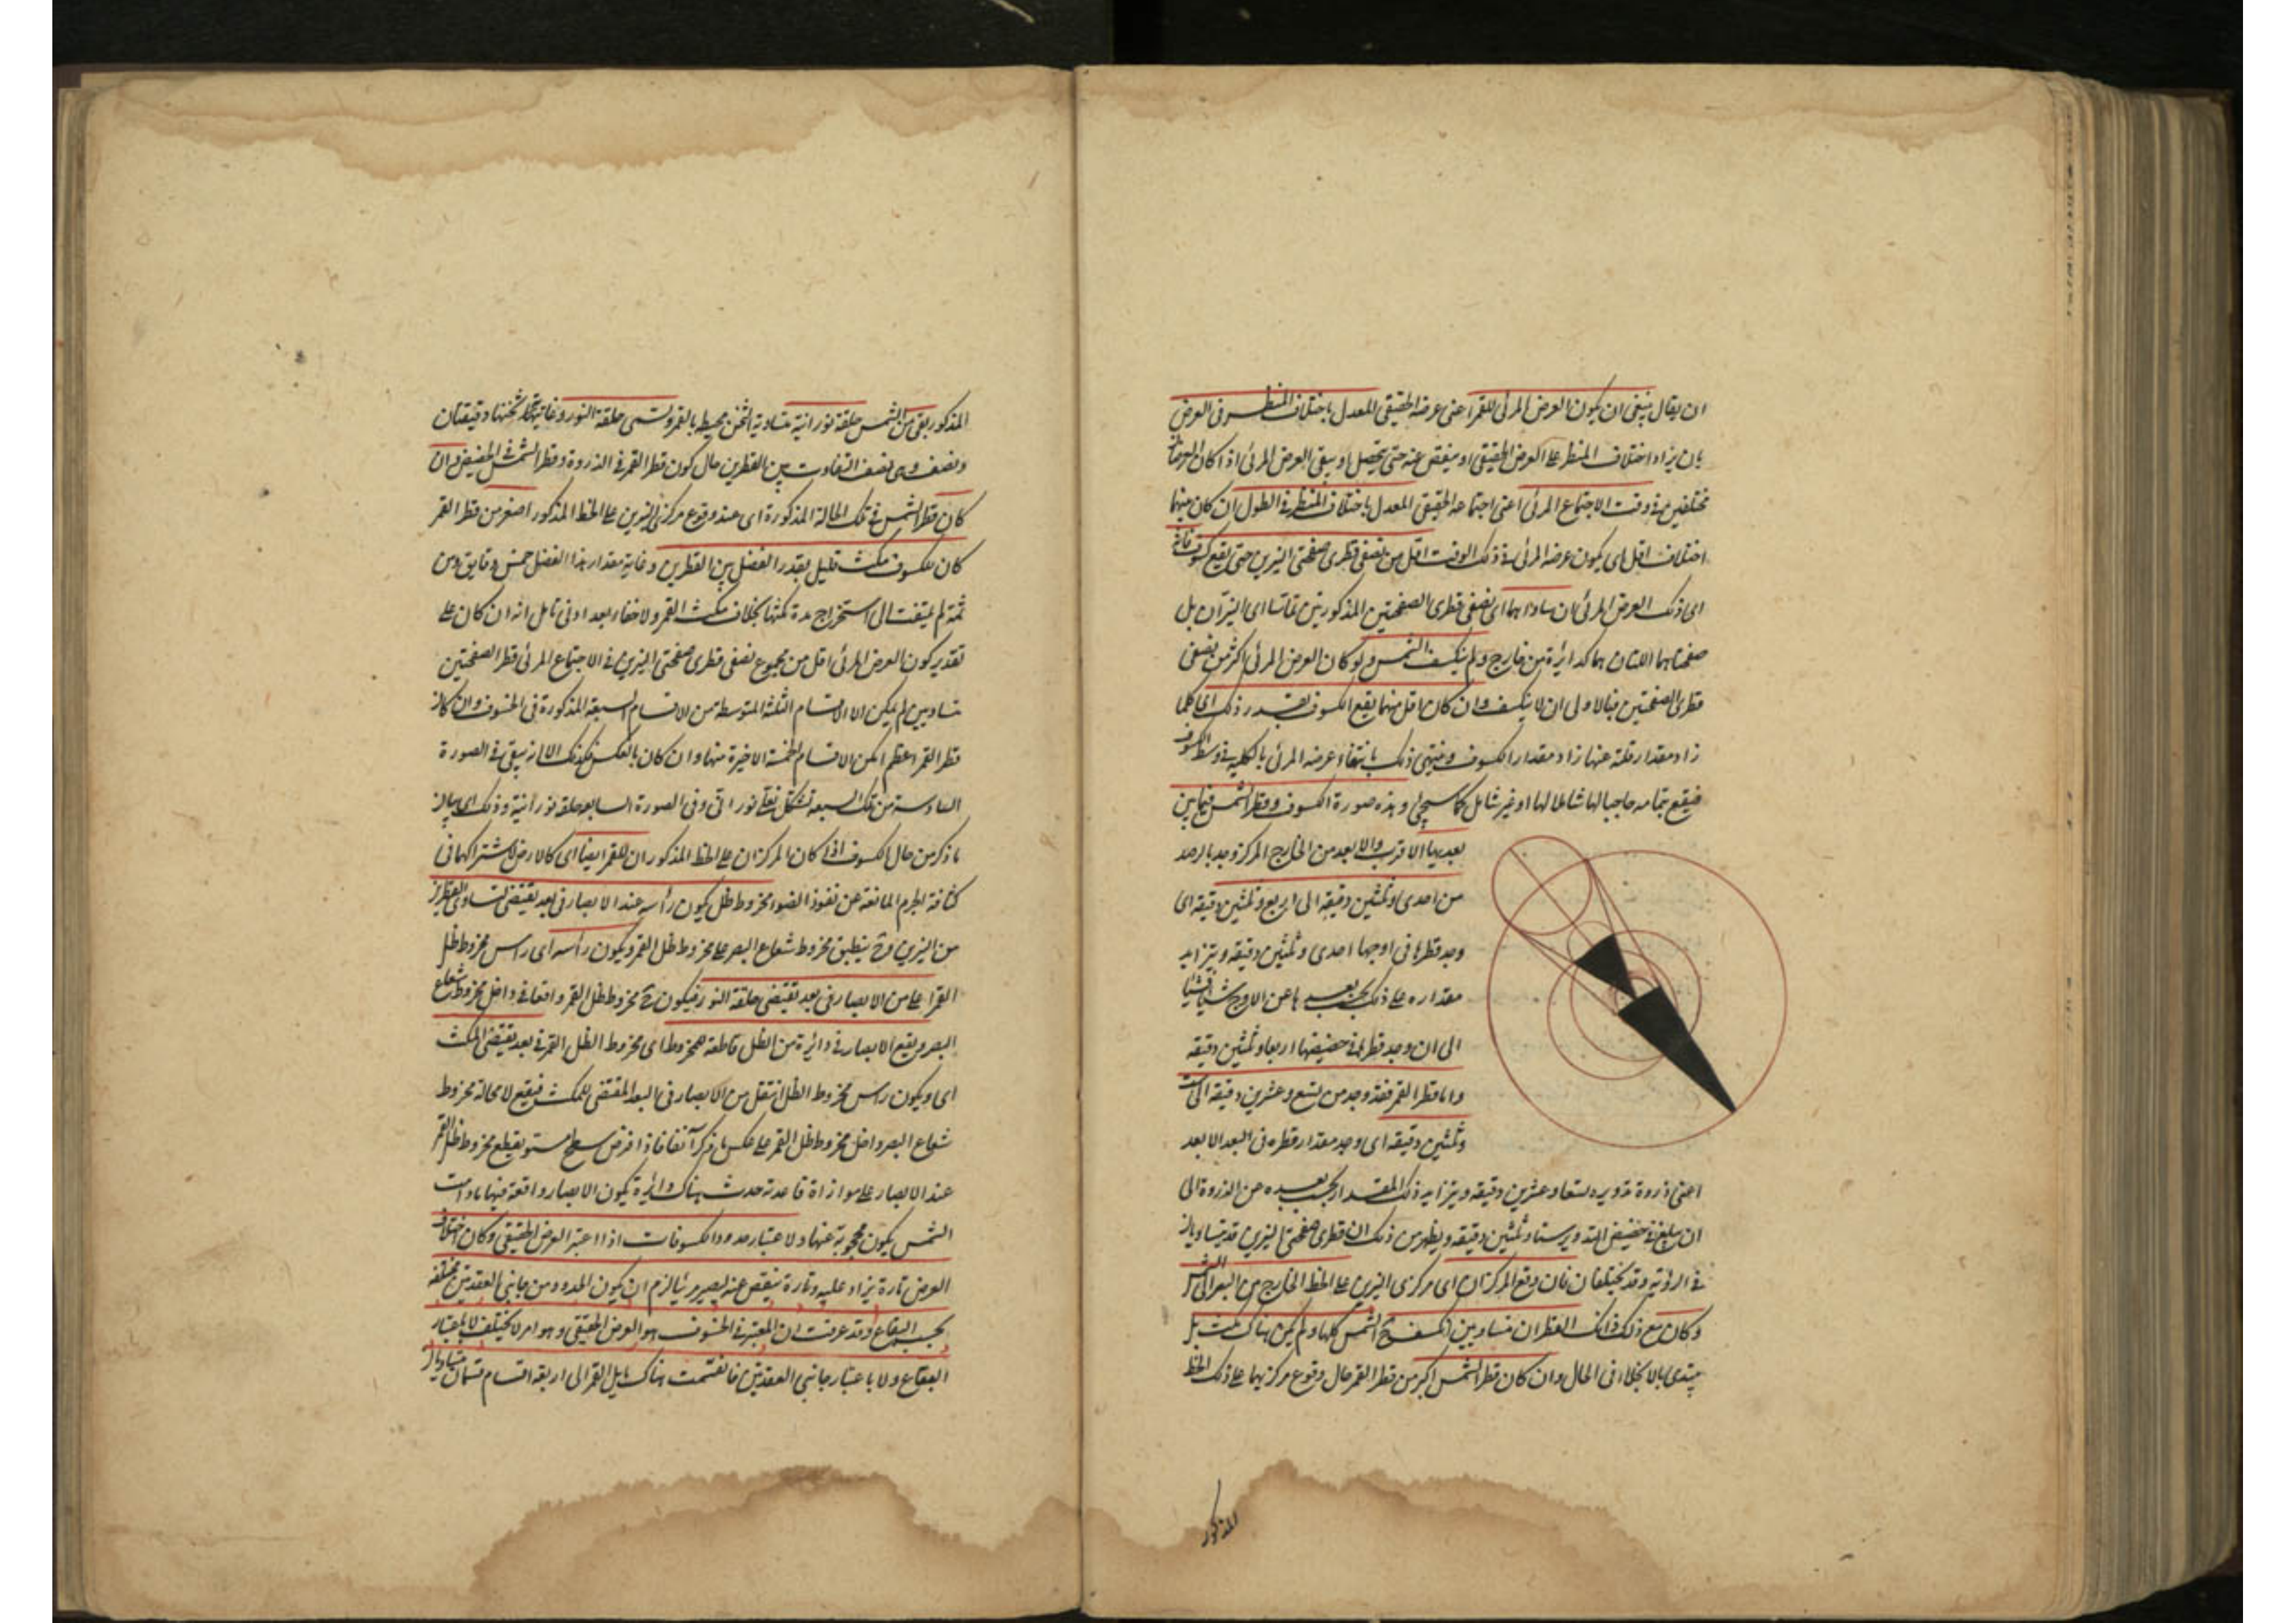 ان يقال ينبغى ان يكون العرض المرئى للقمر اعنى عرضه الحقيقى المعدل باختلاف المنظر فى العرض
بان يزاد اختلاف المنظر على العرض الحقيقى او ينقص عنه حتى يحصل او يبقى العرض المرئى اذا كان العرضان
مختلفين فى وقت الاجتماع المرئى اعنى اجتماعه الحقيقى المعدل باختلاف المنظر فى الطول ان كان بينهما
اختلاف اقل اى يكون عرضه المرئى فى ذلك الوقت اقل من نصفى قطرى صفحتى النيرين حتى يقع كسوف فانه
اى ذلك العرض المرئى ان ساواهما اى نصفى قطرى الصفحتين المذكورتين تماسا اى النيران بل
صفحتاهما اللتان هما كدائرة من خارج ولم ينكسف الشمس ولو كان العرض المرئى اكثر من نصفى
قطرى الصفحتين فبالاولى ان لا ينكسف وان كان اقل منهما يقع الكسوف بقدر ذلك اى كلما
زاد مقدار قلته عنها زاد مقدار الكسوف وينتهى ذلك بانتفاء عرضه المرئى بالكلية فى وسط الكسوف
فيقع بتمامه حاجبا لها شاملا لها او غير شامل كما سيجئ وهذه صورة الكسوف وقطر الشمس فيما بين
بعديها الاقرب والابعد من الخارج المركز وجد بالرصد
من احدى وثلثين دقيقة الى اربع وثلثين دقيقة اى
وجد قطرها فى اوجها احدى وثلثين دقيقة ويتزايد
مقداره على ذلك بحسب بعدها عن الاوج شيئا فشيئا
الى ان وجد قطرها فى حضيضها اربعا وثلثين دقيقة
واما قطر القمر فقد وجد من تسع وعشرين دقيقة الى ست
وثلثين دقيقة اى وجد مقدار قطره فى البعد الابعد
اعنى ذروة تدويره تسعا وعشرين دقيقة ويتزايد ذلك المقدار بحسب بعده عن الذروة الى
ان يبلغ فى حضيض التدوير ستا وثلثين دقيقة ويظهر من ذلك ان قطرى صفحتى النيرين قد يتساويان
فى الرؤية وقد يختلفان فان وقع المركزان اى مركزى النيرين على الخط الخارج من البصر الى الشمس
وكان مع ذلك القطران متساويين انكسف الشمس كلها ولم يكن هناك مكث بل
يبتدى بالانجلاء فى الحال وان كان قطر الشمس اكبر من قطر القمر حال وقوع مركزيهما على ذلك الخط
المذكور
المذكور بقى من الشمس حلقة نورانية متساوية الثخن محيط بالقمر وتسمى حلقة النور وغاية ثخنها دقيقتان
ونصف وهى نصف التفاوت بين القطرين حال كون قطر القمر فى الذروة وقطر الشمس فى الحضيض وان
كان قطر الشمس فى تلك الحالة المذكورة اى عند وقوع مركزى النيرين على الخط المذكور اصغر من قطر القمر
كان للكسوف مكث قليل بقدر الفضل بين القطرين وغاية مقدار هذا الفضل خمس دقايق ومن
ثمة لم يلتفت الى استخراج مدة مكثها بخلاف مكث القمر ولا خفاء بعد ادنى تامل انه ان كان على
تقدير كون العرض المرئى اقل من مجموع نصفى قطرى صفحتى النيرين فى الاجتماع المرئى قطر الصفحتين
متساويين لم يمكن الا الاقسام الثلثة المتوسطة من الاقسام السبعة المذكورة فى الخسوف وان كان
قطر القمر اعظم امكن الاقسام الخمسة الاخيرة منها وان كان بالعكس فكذلك الا انه يبقى فى الصورة
السادسة من تلك السبعة شكل نعلى نورانى وفى الصورة السابعة حلقة نورانية وذلك اى بيان
ما ذكر من حال الكسوف اذا كان المركزان على الخط المذكور ان للقمر ايضا اى كالارض لاشتراكهما فى
كثافة الجرم المانعة عن نفوذ الضوء مخروط ظل يكون رأسه عند الابصار فى بعد يقتضى تساوى القطرين
من النيرين وح ينطبق مخروط شعاع البصر على مخروط ظل القمر ويكون رأسه اى راس مخروط ظل
القمر اعلى من الابصار فى بعد يقتضى حلقة النور فيكون ح مخروط ظل القمر واقعا فى داخل مخروط شعاع
البصر ويقع الابصار فى دائرة من الظل قاطعة للمخروط اى مخروط الظل القمر فى بعد يقتضى المكث
اى ويكون راس مخروط الظل اسفل من الابصار فى البعد المقتضى للمكث فيقع لا محالة مخروط
شعاع البصر داخل مخروط ظل القمر على عكس ما ذكر آنفا فاذا فرض سطح مستو يقطع مخروط ظل القمر
عند الابصار على موازاة قاعدته حدث هناك دائرة يكون الابصار واقعة فيها ما دامت
الشمس يكون محجوبة عنها ولاعتبار حدود الكسوفات اذا اعتبر العرض الحقيقى وكان اختلاف
العرض تارة يزاد عليه وتارة ينقص عنه ليصير مرئيا لزم ان يكون الحدود من جانبى العقدتين مختلفة
بحسب البقاع وقد عرفت ان المعتبر فى الخسوف هو العرض الحقيقى وهو امر لا يختلف لا باعتبار
البقاع ولا باعتبار جانبى العقدتين فانقسمت هناك مايل القمر الى اربعة اقسام قسمان متساويان